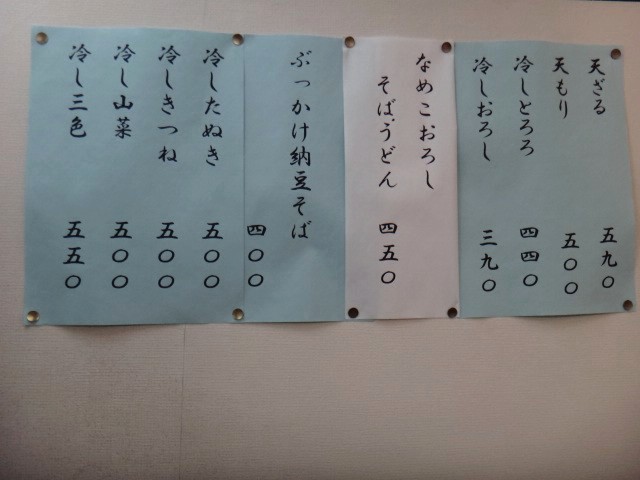 天ざる 五九〇
天もり 五〇〇
冷しとろろ 四四〇
冷しおろし 三九〇
なめこおろし
そば、うどん 四五〇
ぶっかけ納豆そば
四〇〇
冷したぬき 五〇〇
冷しきつね 五〇〇
冷し山菜 五〇〇
冷し三色 五五〇